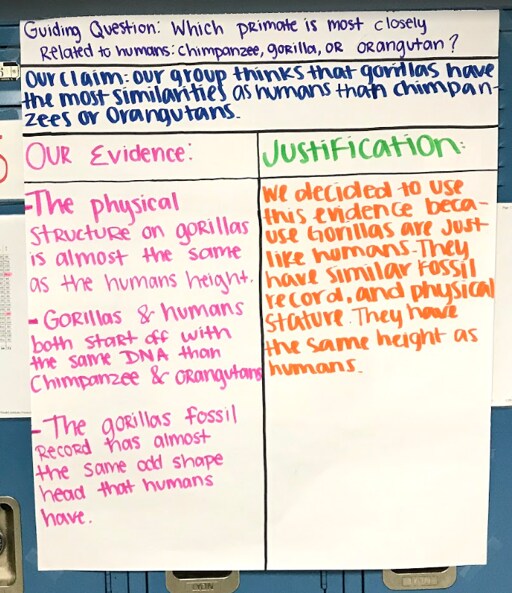 Guiding Question: Which primate is most closely
Related to humans: chimpanzee, gorilla, or orangutan?
Our claim: our group thinks that gorillas have
the most similarities as humans than chimpan-
zees or orangutans.
Our Evidence:
-The physical
structure on gorillas
is almost the same
as the humans height.
- Gorillas & humans
both start off with
the same DNA than
Chimpanzee & orangutans
-The gorillas fossil
record has almost
the same odd shape
head that humans
have.
Justification:
We decided to use
this evidence beca-
use Gorillas are just
like humans. They
have similar fossil
record, and physical
stature. They have
the same height as
humans.